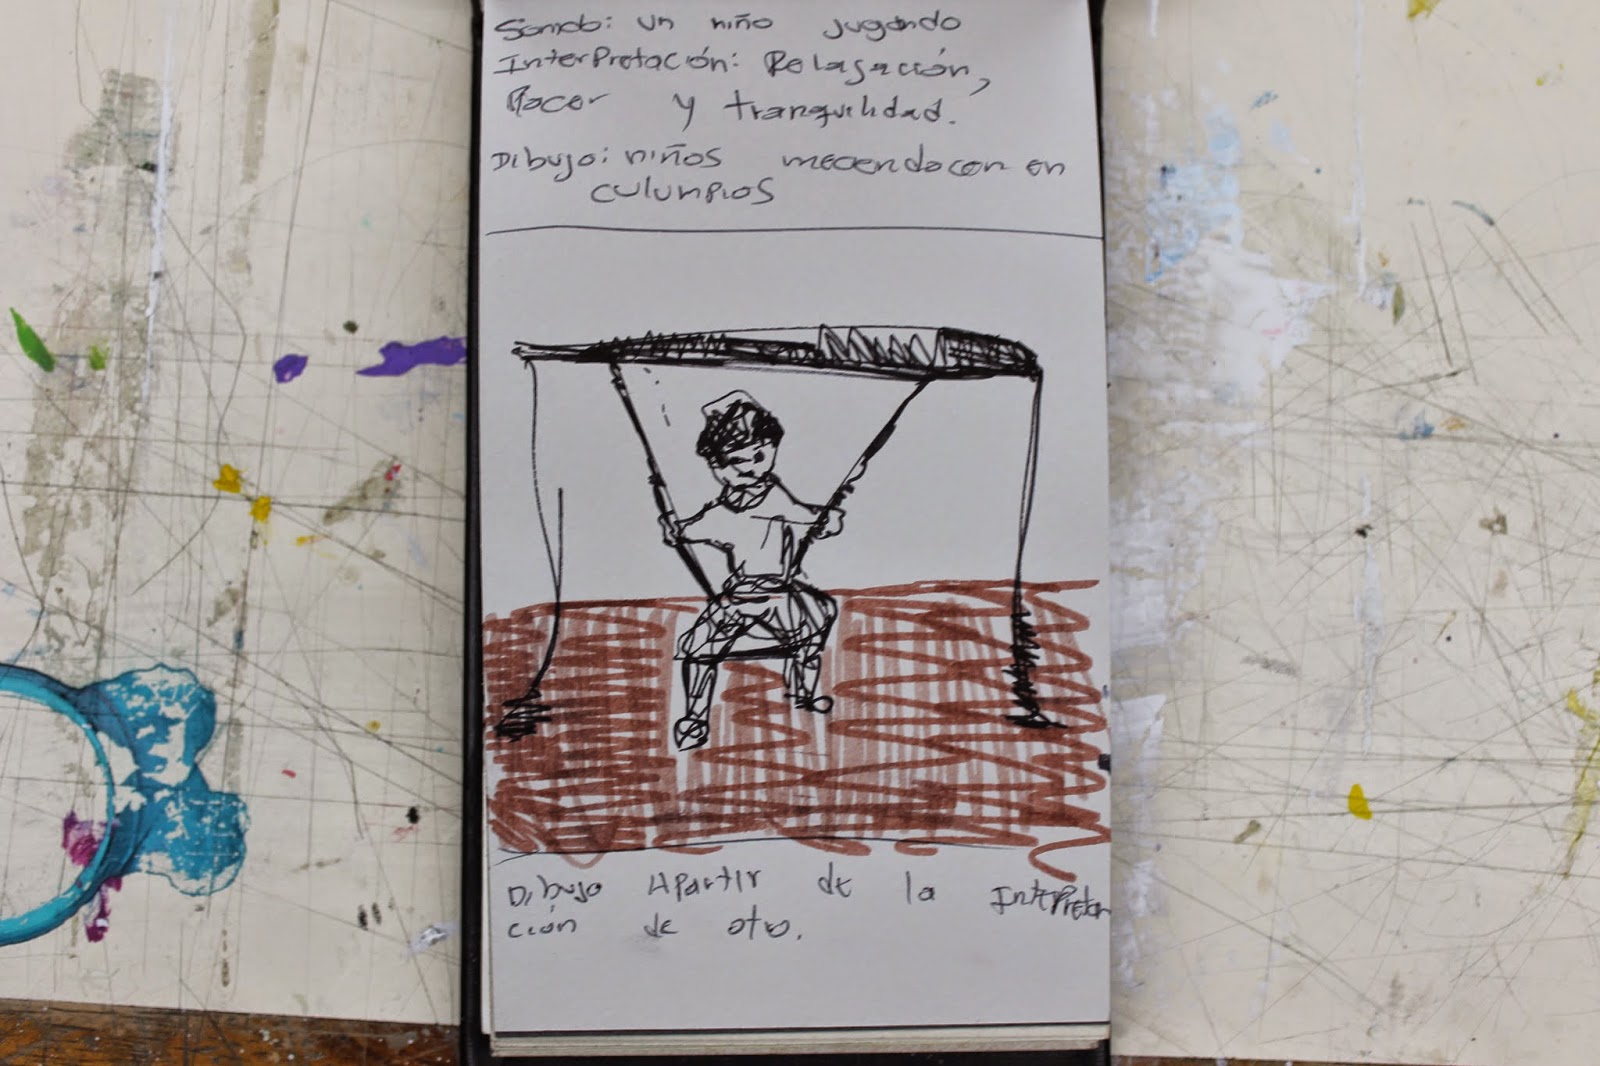 Sonido: un niño jugando
Interpretación: Relasación,
Placer y tranquilidad.
Dibujo: niños mecendocen en
culunpios
Dibujo Apartir de la Interpreta
ción de otro.